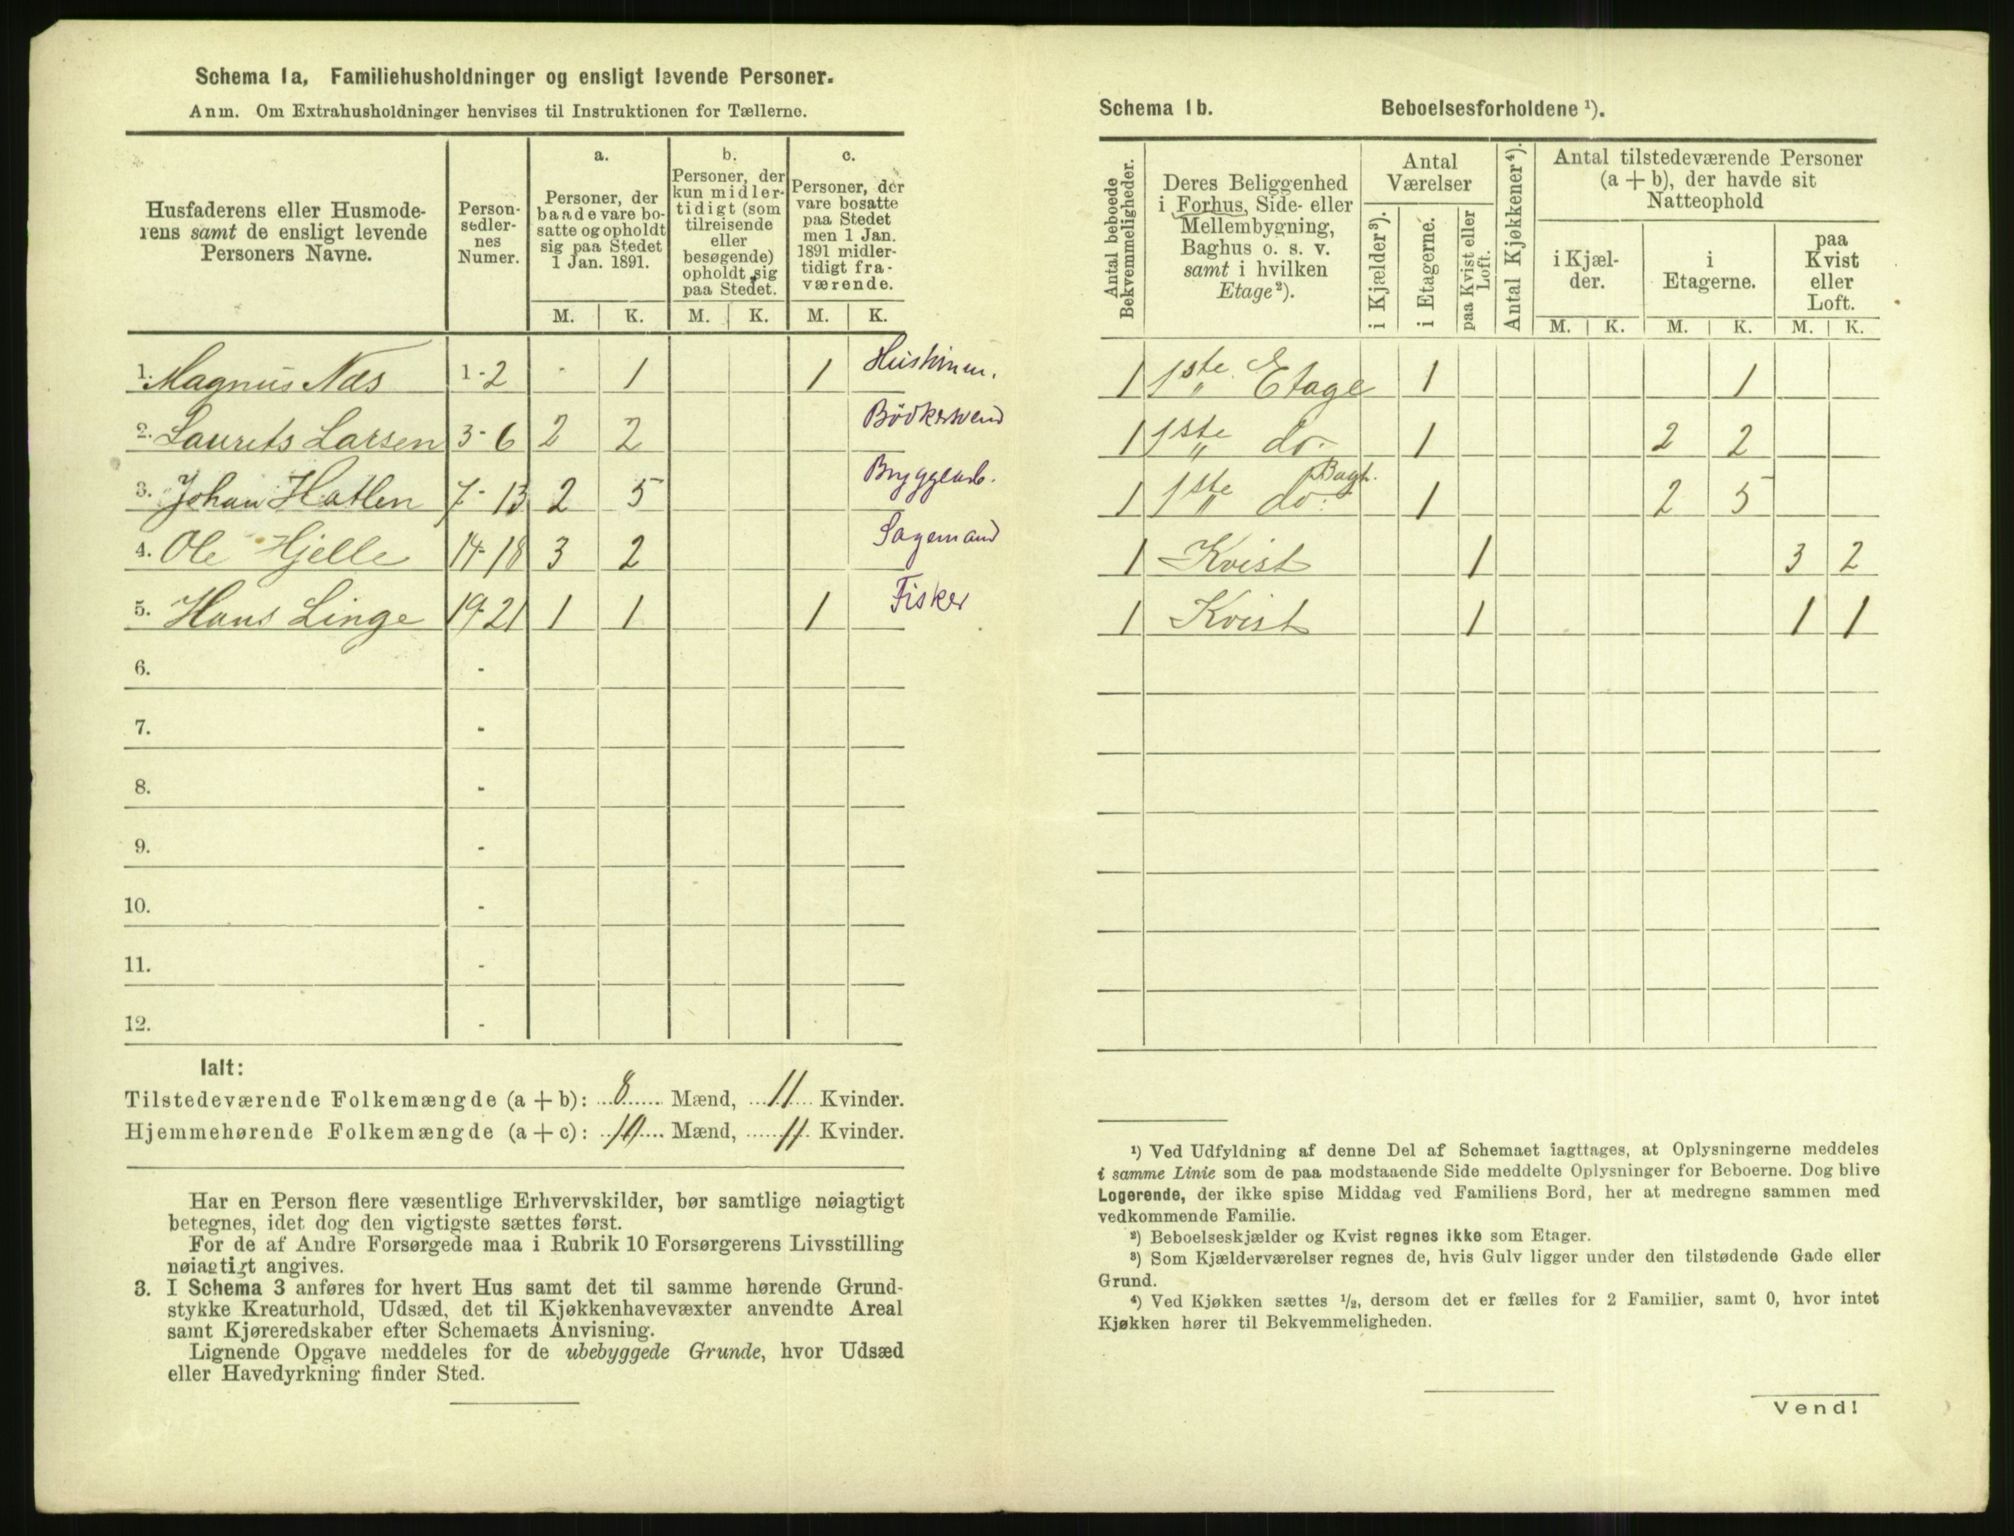 Schema 1a. Familiehusholdninger og ensligt levende Personer.
Anm. Om Extrahusholdninger henvises til Instruktionen for Tællerne.
Husfaderens eller Husmoderens samt de ensligt levende Personers Navne.
Personsedlernes Numer.
a. Personer, der baade vare bosatte og opholdt sig paa Stedet 1 Jan. 1891.
b. Personer, der kun midlertidigt (som tilreisende eller besøgende) opholdt sig paa Stedet.
c. Personer, der vare bosatte paa Stedet men 1 Jan. 1891 midlertidigt fraværende.
M. K. M. K. M. K.
1. Magnus Næs 1-2 - 1 1
2. Laurits Larsen 3-6 2 2 Bødkersvend
3. Johan Hatlen 7-13 2 5 Bryggearb.
4. Ole Hjelle 14-18 3 2 Sagemand
5. Hans Linge 19-21 1 1 1 Fisker
6. -
7. -
8. -
9. -
10. -
11. -
12. -
Ialt:
Tilstedeværende Folkemængde (a + b): 8 Mænd, 11 Kvinder.
Hjemmehørende Folkemængde (a + c): 10 Mænd, 11 Kvinder.
Har en Person flere væsentlige Erhvervskilder, bør samtlige nøiagtigt
betegnes, idet dog den vigtigste sættes først.
For de af Andre Forsørgede maa i Rubrik 10 Forsørgerens Livsstilling
nøiagtigt angives.
3. I Schema 3 anføres for hvert Hus samt det til samme hørende Grund-
stykke Kreaturhold, Udsæd, det til Kjøkkenhavevæxter anvendte Areal
samt Kjøreredskaber efter Schemaets Anvisning.
Lignende Opgave meddeles for de ubebyggede Grunde, hvor Udsæd
eller Havedyrkning finder Sted.
Schema 1b. Beboelsesforholdene ¹).
Antal beboede Bekvemmeligheder.
Deres Beliggenhed i Forhus, Side- eller Mellembygning, Baghus o. s. v. samt i hvilken Etage²).
Antal Værelser
i Kjælder³).
i Etagerne.
paa Kvist eller Loft.
Antal Kjøkkener⁴).
Antal tilstedeværende Personer (a + b), der havde sit Natteophold
i Kjælder.
i Etagerne.
paa Kvist eller Loft.
M. K. M. K. M. K.
1 1ste Etage 1 1
1 1ste do. 1 2 2
1 1ste do. Bagt. 1 2 5
1 Kvist 1 3 2
1 Kvist 1 1 1
¹) Ved Udfyldning af denne Del af Schemaet iagttages, at Oplysningerne meddeles
i samme Linie som de paa modstaaende Side meddelte Oplysninger for Beboerne. Dog blive
Logerende, der ikke spise Middag ved Familiens Bord, her at medregne sammen med
vedkommende Familie.
²) Beboelseskjælder og Kvist regnes ikke som Etager.
³) Som Kjælderværelser regnes de, hvis Gulv ligger under den tilstødende Gade eller
Grund.
⁴) Ved Kjøkken sættes ½, dersom det er fælles for 2 Familier, samt 0, hvor intet
Kjøkken hører til Bekvemmeligheden.
Vend!